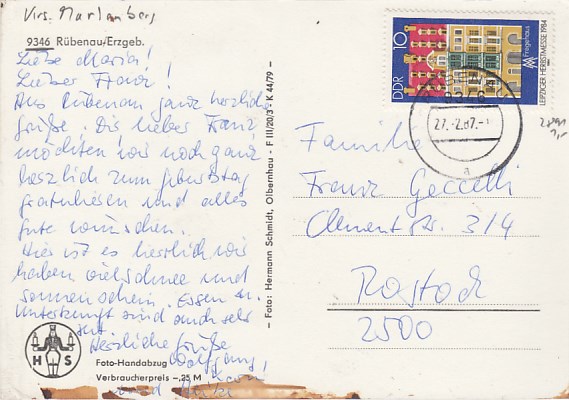 Krs. Marienberg
9346 Rübenau/Erzgeb.
Liebe Maria!
Lieber Franz!
Aus Rübenau ganz herzliche
Grüße. Dir lieber Franz
möchten wir noch ganz
herzlich zum Geburtstag
gratulieren und alles
Gute wünschen.
Hier ist es herrlich wir
haben viel Schnee und
Sonnenschein. Essen u.
Unterkunft sind auch sehr
gut.
Herzliche Grüße
Wolfgang,
und
H S
Foto-Handabzug
Verbraucherpreis –,25 M
– Foto: Hermann Schmidt, Olbernhau - F III/20/3 - K 44/79 –
DDR 10
Fregehaus
LEIPZIGER HERBSTMESSE 1984
9346
27.-2.87.-
a
Familie
Franz Geccelli
Clementstr. 3/4
Rostock
2500